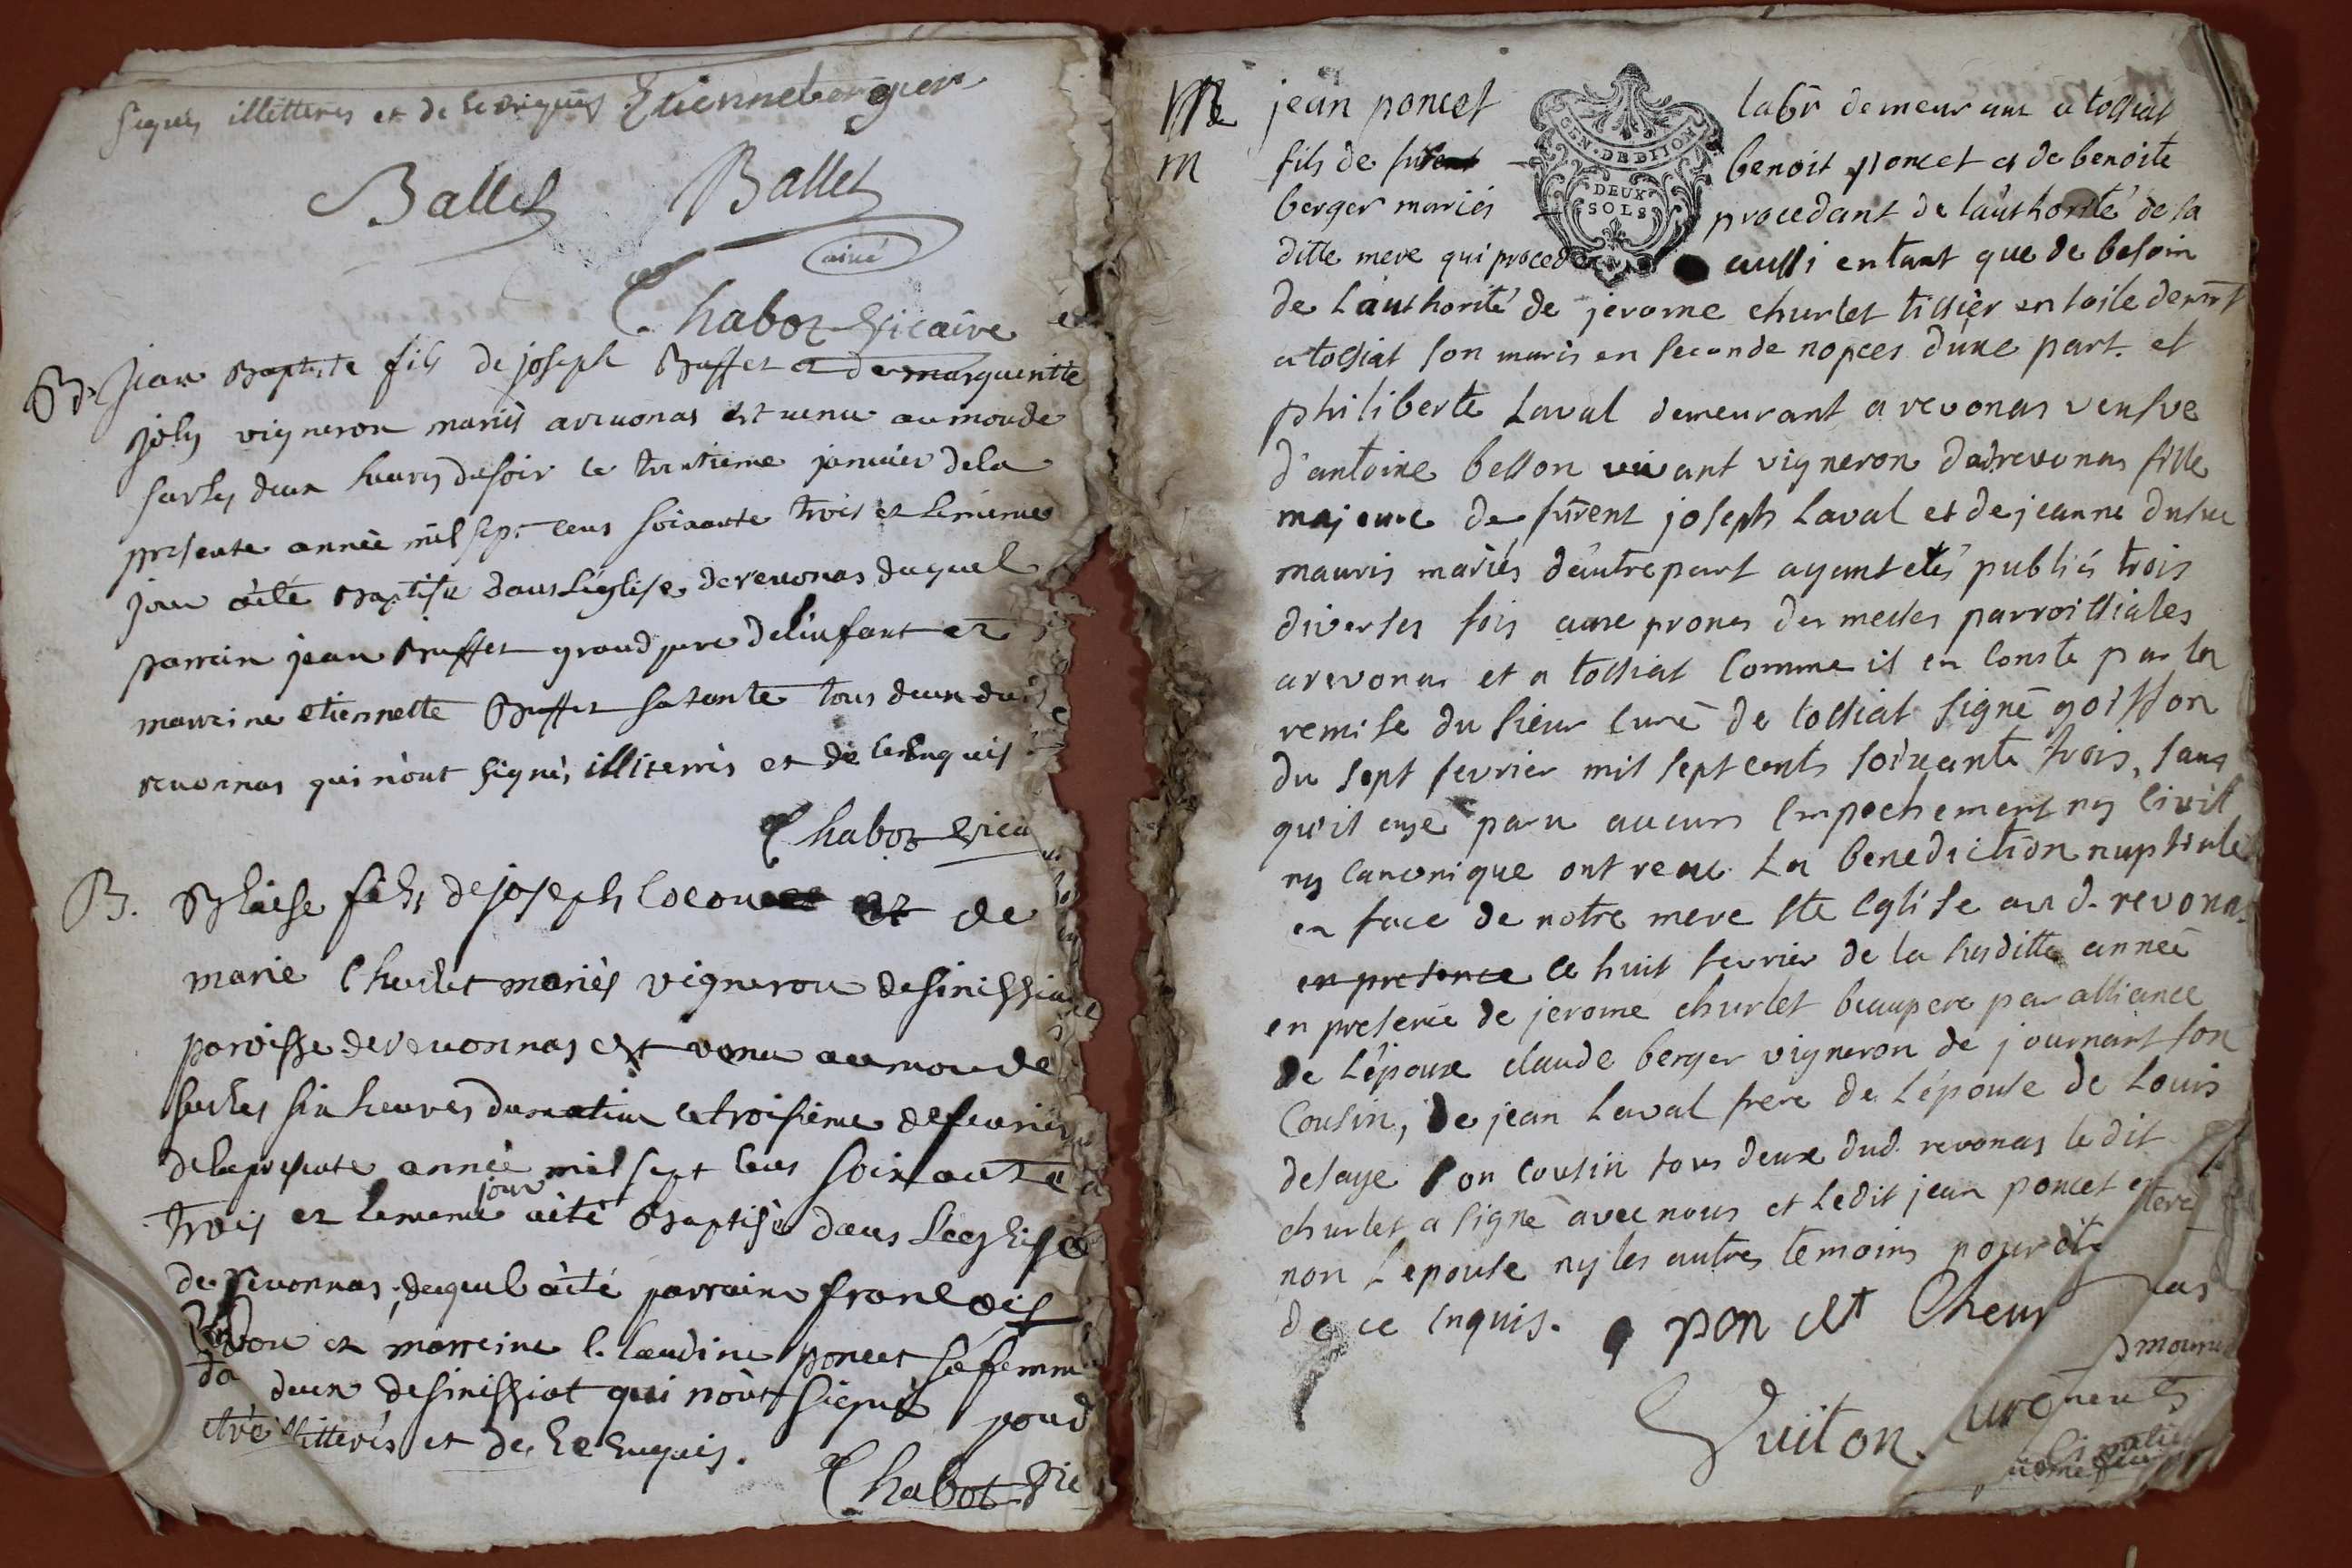 signés illitteres et de ce enquis Etienne berger
Ballet Ballet
ainé
Chabot vicaire
B. Jean Baptiste fils de joseph Buffet et de margueritte
joly vigneron mariés a revonas est venu au monde
sur les deux heures du soir le trentieme janvier de la
presente année mil sept cens soixante trois et le meme
jour a été Baptisé dans l'eglise de revonas duquel
parrain jean Buffet grand pere de l'enfant et
marreine etiennette Buffet sa tante tous deux dud
revonnas qui n'ont signés illiterrés et de ce enquis
Chabot vica
B. Blaise fils de joseph et de
marie Churlet mariés vigneron de sinissiat
paroisse de revonnas est venu au monde
sur les six heures du matin le troisieme de fevrier
de la presente année mil sept cens soixante
trois et le meme jour a été Baptisé dans l'eglise
de revonnas, duquel a été parrain francois
et marreine Claudine poncet sa femme
deux de sinissiat qui n'ont signés pour
etre illitterés et de ce enquis.
Chabot vic
M jean poncet labr demeurant a tossiat
m fils de furent benoit poncet et de benoite
berger mariés procedant de l'authorité de sa
ditte mere qui procede aussi entant que de besoin
de l'authorité de jerome churlet tissier en toile demrt
a tossiat son maris en seconde nopces d'une part. et
philiberte Laval demeurant a revonas veufve
d'antoine bellon vivant vigneron dud revonas fille
majeure de furent joseph Laval et de jeanne
mauris mariés d'autre part ayant etés publiés trois
diverses fois aux prones des messes parroissiales
a revonas et a tossiat comme il en conste par la
remise du sieur curé de tossiat signé goiffon
du sept fevrier mil sept cents soixante trois, sans
qu'il aye paru aucun empechement ny civil
ny canonique ont recu la benediction nuptiale
en face de notre mere ste eglise aud. revonas
en presence le huit fevrier de la susditte année
en presence de jerome churlet beaupere par alliance
de l'epoux claude berger vigneron de journant son
cousin, de jean Laval frere de l'epouse de Louis
delaye son cousin tous deux dud. revonas le dit
churlet a signé avec nous et ledit jean poncet
non l'epouse ny les autres temoins pour
de ce enquis. pon cet Cheur
Guiton curé